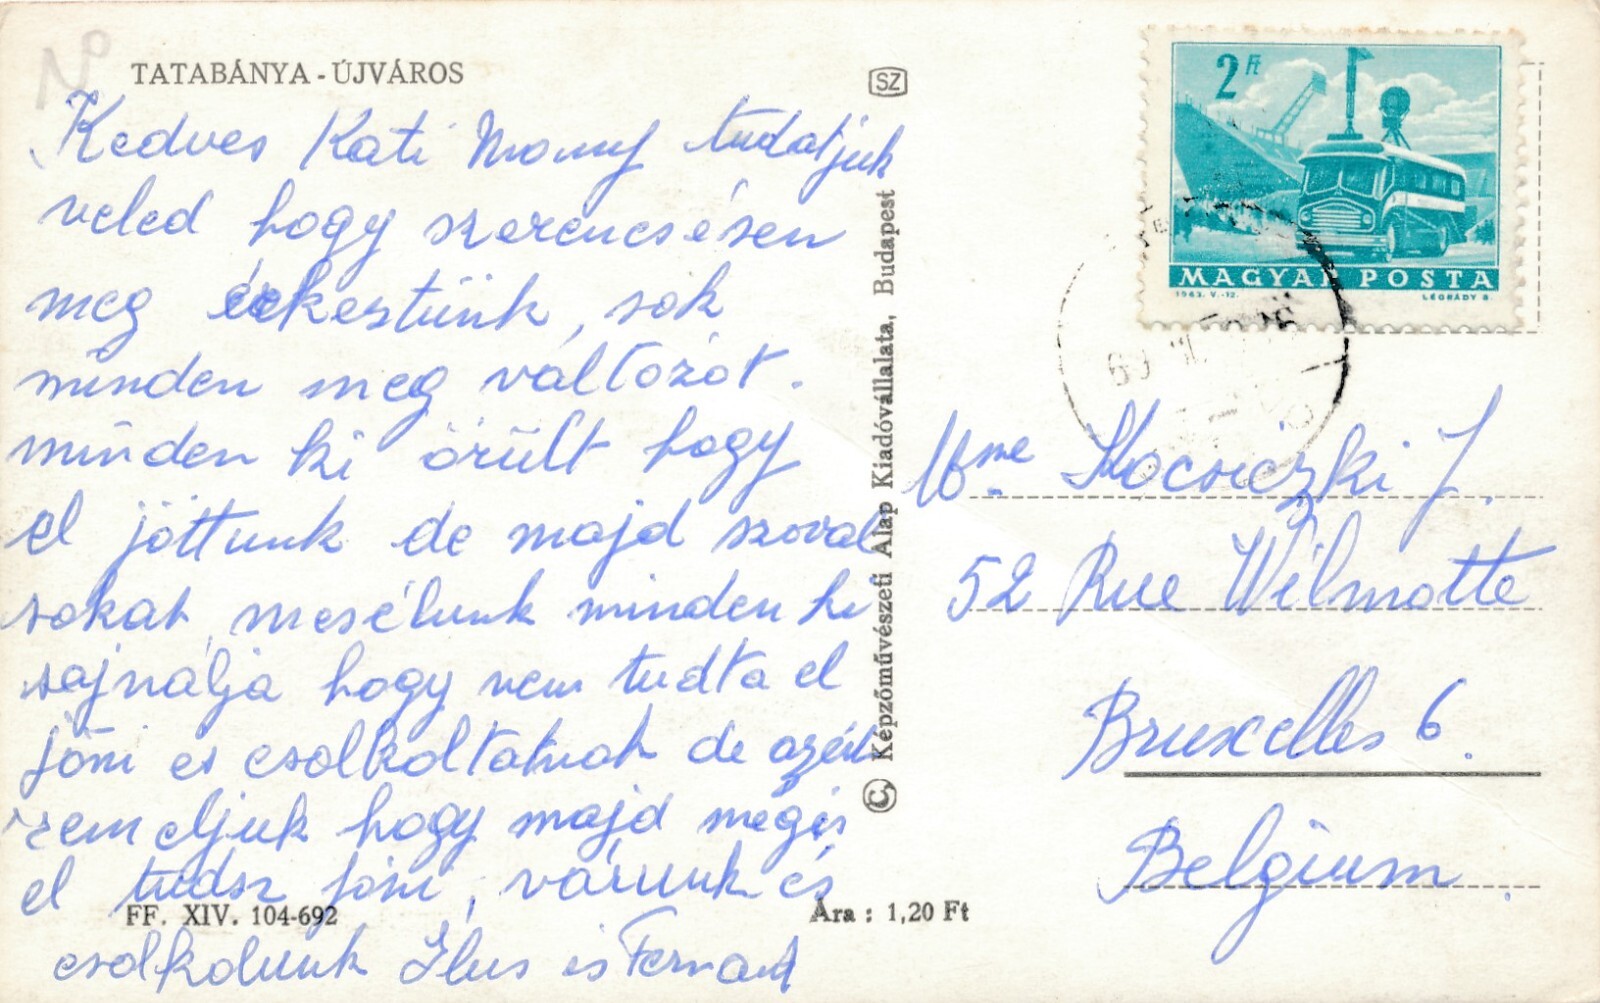 TATABÁNYA - ÚJVÁROS
Kedves Kati tudatjuk
veled hogy szerencsésen
meg érkestünk, sok
minden meg váltózót.
minden ki örült hogy
el jöttunk de majd szoval
sokat, mesélunk minden ki
sajnálja hogy nem tudta el
jöni es csolkoltatnak de azért
remeljuk hogy majd mégis
el tudsz jöni, várunk és
csolkolunk Ilus es Fernand
FF. XIV. 104-692
Ára : 1,20 Ft
SZ
© Képzőművészeti Alap Kiadóvállalata, Budapest
2 Ft
MAGYAR POSTA
1963. V.-12. LÉGRÁDY S.
Mme Kocsiczki J.
52 Rue Wilmotte
Bruxelles 6.
Belgium.